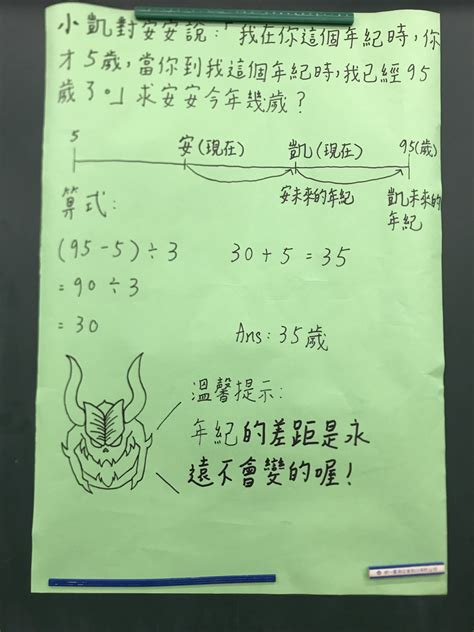 小凱對安安說:「我在你這個年紀時,你
才5歲,當你到我這個年紀時,我已經95
歲了。」求安安今年幾歲?
5 安(現在) 凱(現在) 95(歲)
安未來的年紀 凱未來的年紀
算式:
(95-5)÷3 30+5=35
=90÷3
=30 Ans:35歲
溫馨提示:
年紀的差距是永
遠不會變的喔!